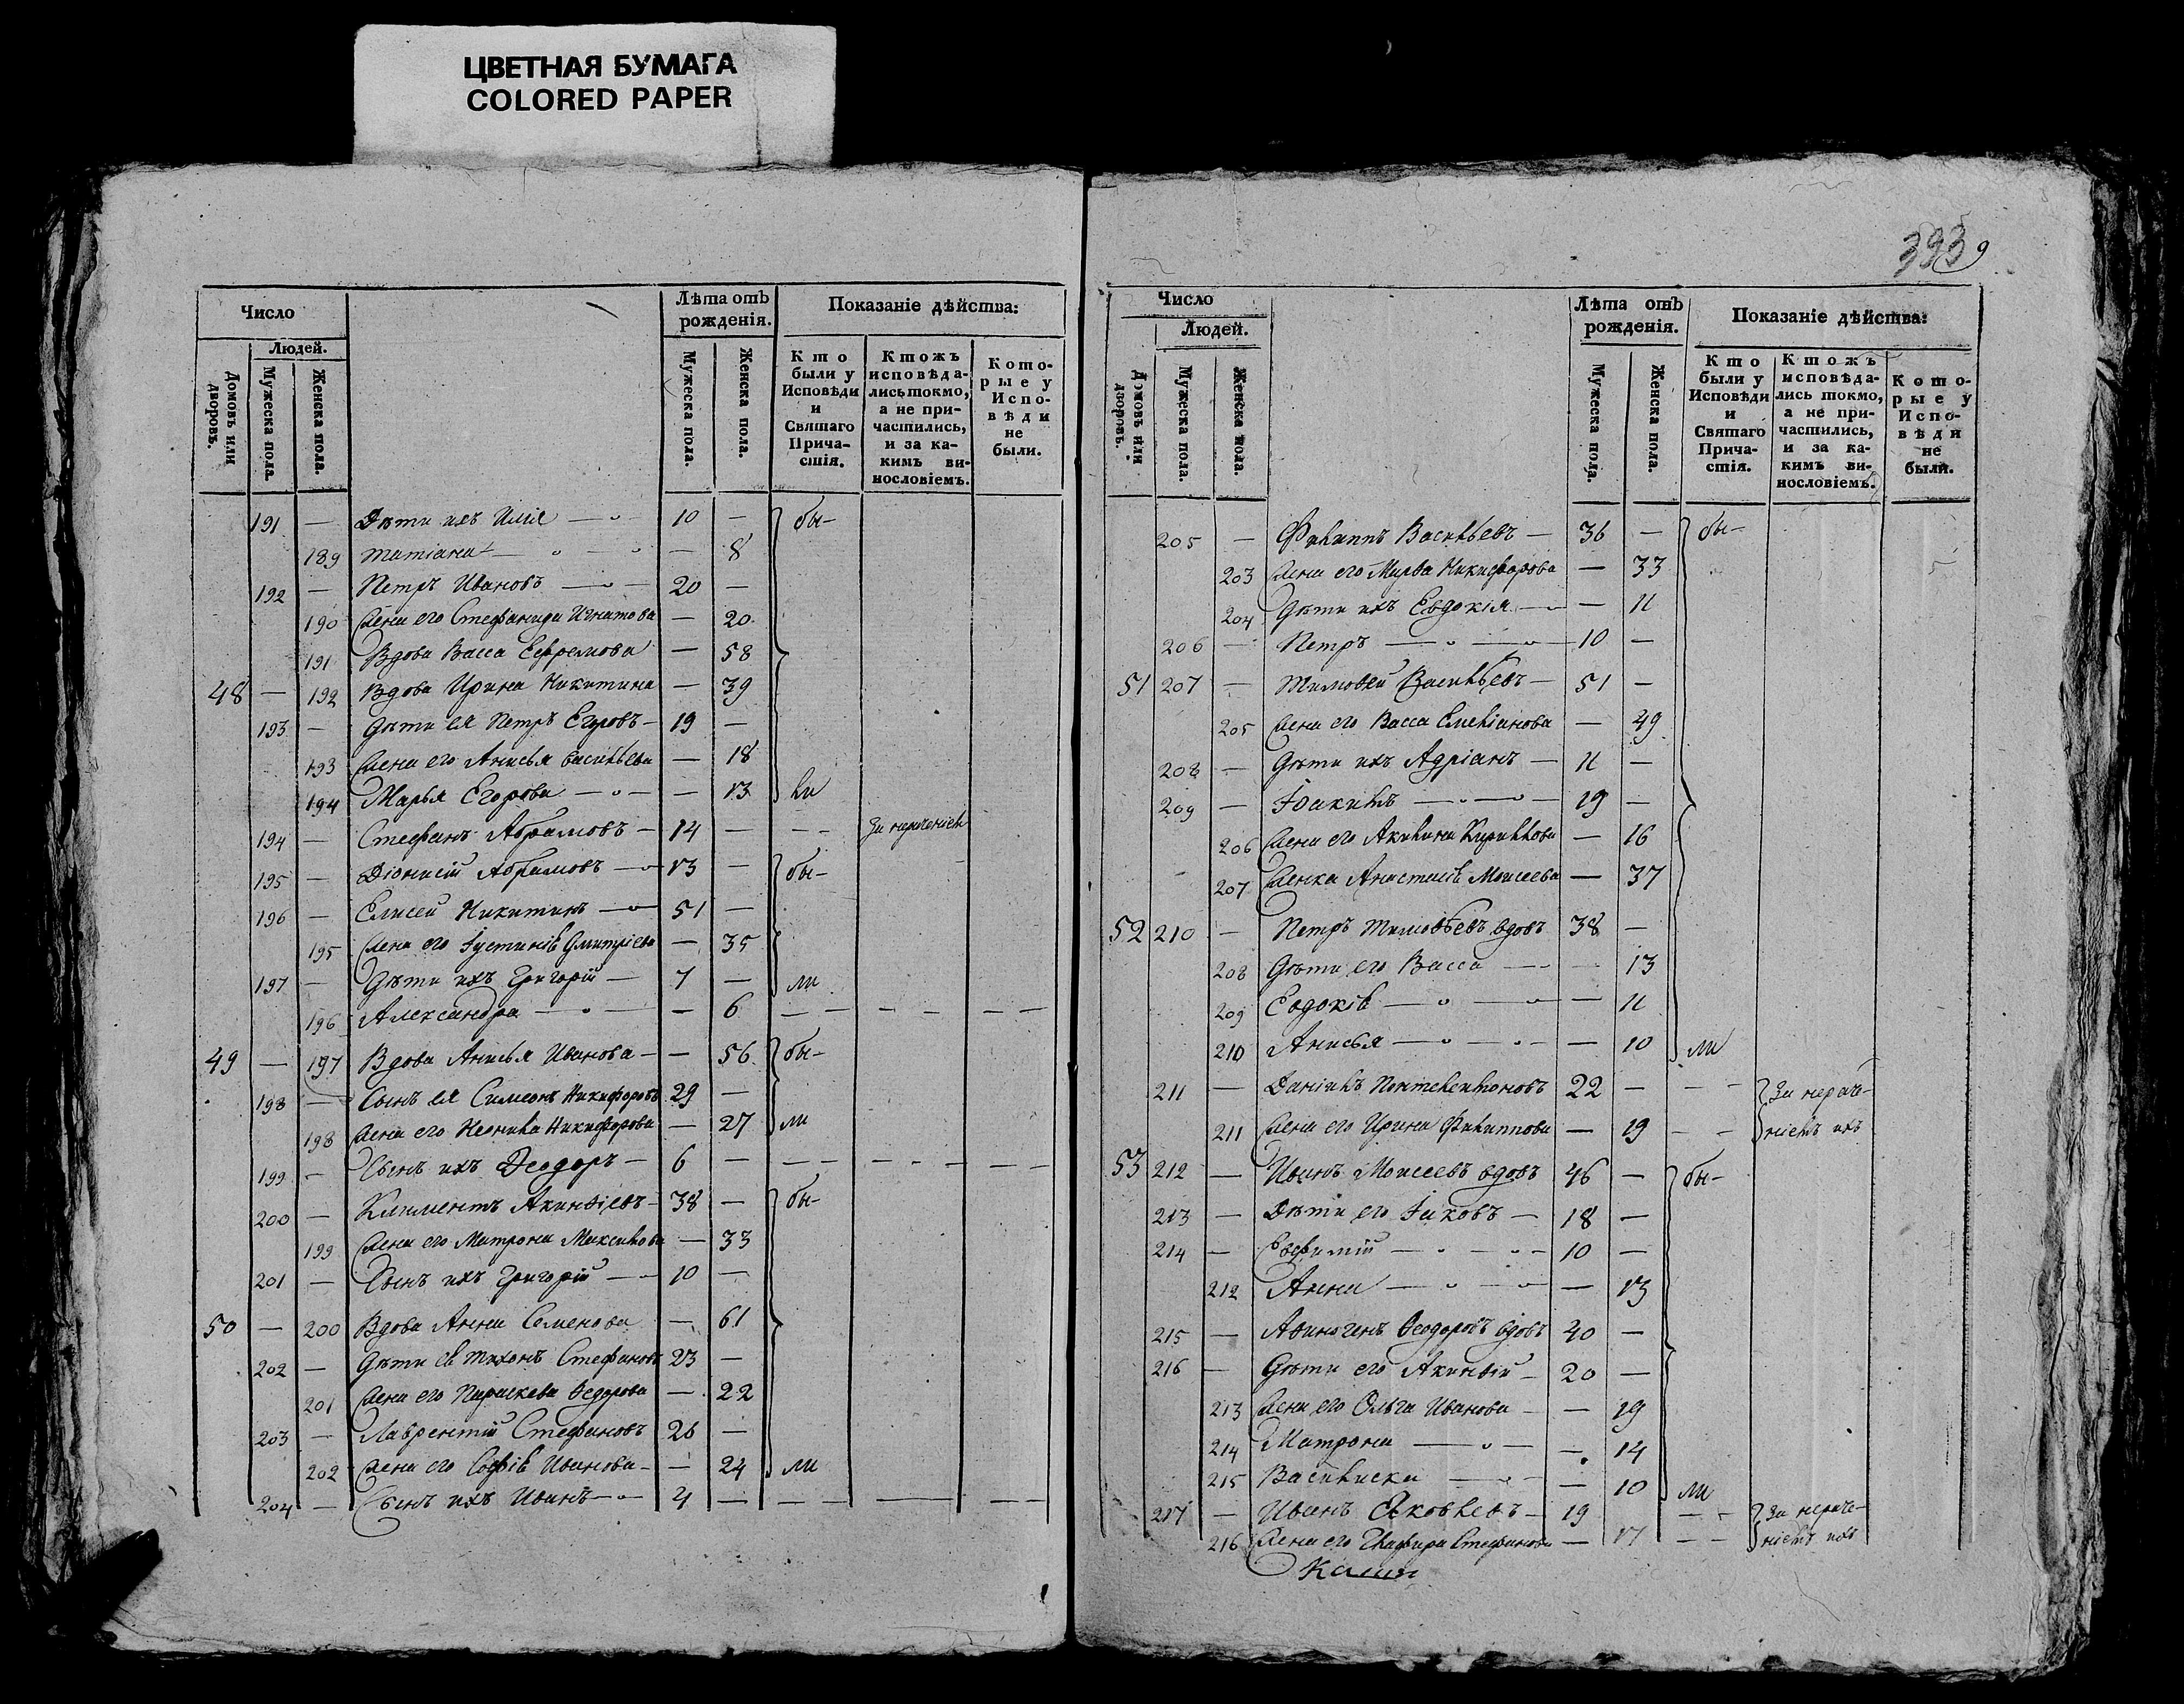 ЦВЕТНАЯ БУМАГА
COLORED PAPER
Число
Людей.
Домовъ или дворовъ.
Мужеска пола.
Женска пола.
Лѣта отъ рожденія.
Мужеска пола.
Женска пола.
Показаніе дѣйства:
Кто были у Исповѣди и Святаго Причастія.
Ктожъ исповѣдались токмо, а не причастились, и за какимъ винословіемъ.
Которые у Исповѣди не были.
191 — Дѣти ихъ Илія — 10 — бы-
189 Татіана — — 8
192 — Петръ Ивановъ — 20 —
190 Жена его Стефанида Игнатова — 20
191 Вдова Васса Ефремова — 58
48 — 192 Вдова Ирина Никитина — 39
193 — Дѣти ея Петръ Егоровъ — 19 —
193 Жена его Анисья Васильева — 18
194 Марья Егорова — — 13 ли
194 — Стефанъ Абрамовъ — 14 — — За нераченіем
195 — Діонисій Абрамовъ — 13 — бы-
196 — Елисей Никитинъ — 51 —
195 Жена его Іустинія Дмитріева — 35
197 — Дѣти ихъ Григорій — 7 — ли
196 Александра — — 6 — — — — — —
49 — 197 Вдова Анисья Иванова — — 56 бы-
198 — Сынъ ея Симеонъ Никифоровъ 29 —
198 Жена его Неонила Никифорова — 27 ли
199 — Сынъ ихъ Ѳеодоръ — 6 — — — — — — —
200 — Климентъ Акинѳіевъ — 38 — бы-
199 Жена его Матрона Максимова — 33
201 — Сынъ ихъ Григорій — 10 —
50 — 200 Вдова Анна Семенова — 61
202 — Дѣти ея Тихонъ Стефановъ 23 —
201 Жена его Параскева Ѳедорова — 22
203 — Лаврентій Стефановъ 26 —
202 Жена его Софія Иванова — — 24 ли
204 — Сынъ ихъ Иванъ — 4 — — — — — —
393 9
Число
Людей.
Домовъ или дворовъ.
Мужеска пола.
Женска пола.
Лѣта отъ рожденія.
Мужеска пола.
Женска пола.
Показаніе дѣйства:
Кто были у Исповѣди и Святаго Причастія.
Ктожъ исповѣдались токмо, а не причастились, и за какимъ винословіемъ.
Которые у Исповѣди не были.
205 — Филиппъ Васильевъ — 36 — бы-
203 Жена его Марѳа Никифорова — 33
204 Дѣти ихъ Евдокія — — 11
206 — Петръ — — 10 —
51 207 — Тимоѳей Васильевъ — 51 —
205 Жена его Васса Емеліанова — 49
208 — Дѣти ихъ Адріанъ — 11 —
209 — Іоакимъ — — 19 —
206 Жена его Акилина Кириллова — 16
207 Женка Анастасія Моисеева — 37
52 210 — Петръ Тимоѳеевъ вдовъ 38 —
208 Дѣти его Васса — — 13
209 Евдокія — — — 11
210 Анисья — — — 10 ли
211 — Даніилъ Пантелеимоновъ 22 — — — За нераче-
211 Жена его Ирина Филиппова — 19 — — ніемъ ихъ
53 212 — Иванъ Моисеевъ вдовъ 46 — бы-
213 — Дѣти его Іаковъ — 18 —
214 — Евфимій — — 10 —
212 Анна — — — 13
215 — Аѳиногенъ Ѳеодоровъ вдовъ 40 —
216 — Дѣти его Акинѳій — 20 —
213 Жена его Ольга Иванова — — 19
214 Матрона — — 14
215 Василиска — — 10 ли
217 — Иванъ Яковлевъ — 19 — — За нераче-
216 Жена его Глафира Стефанова — 17 — — ніемъ ихъ